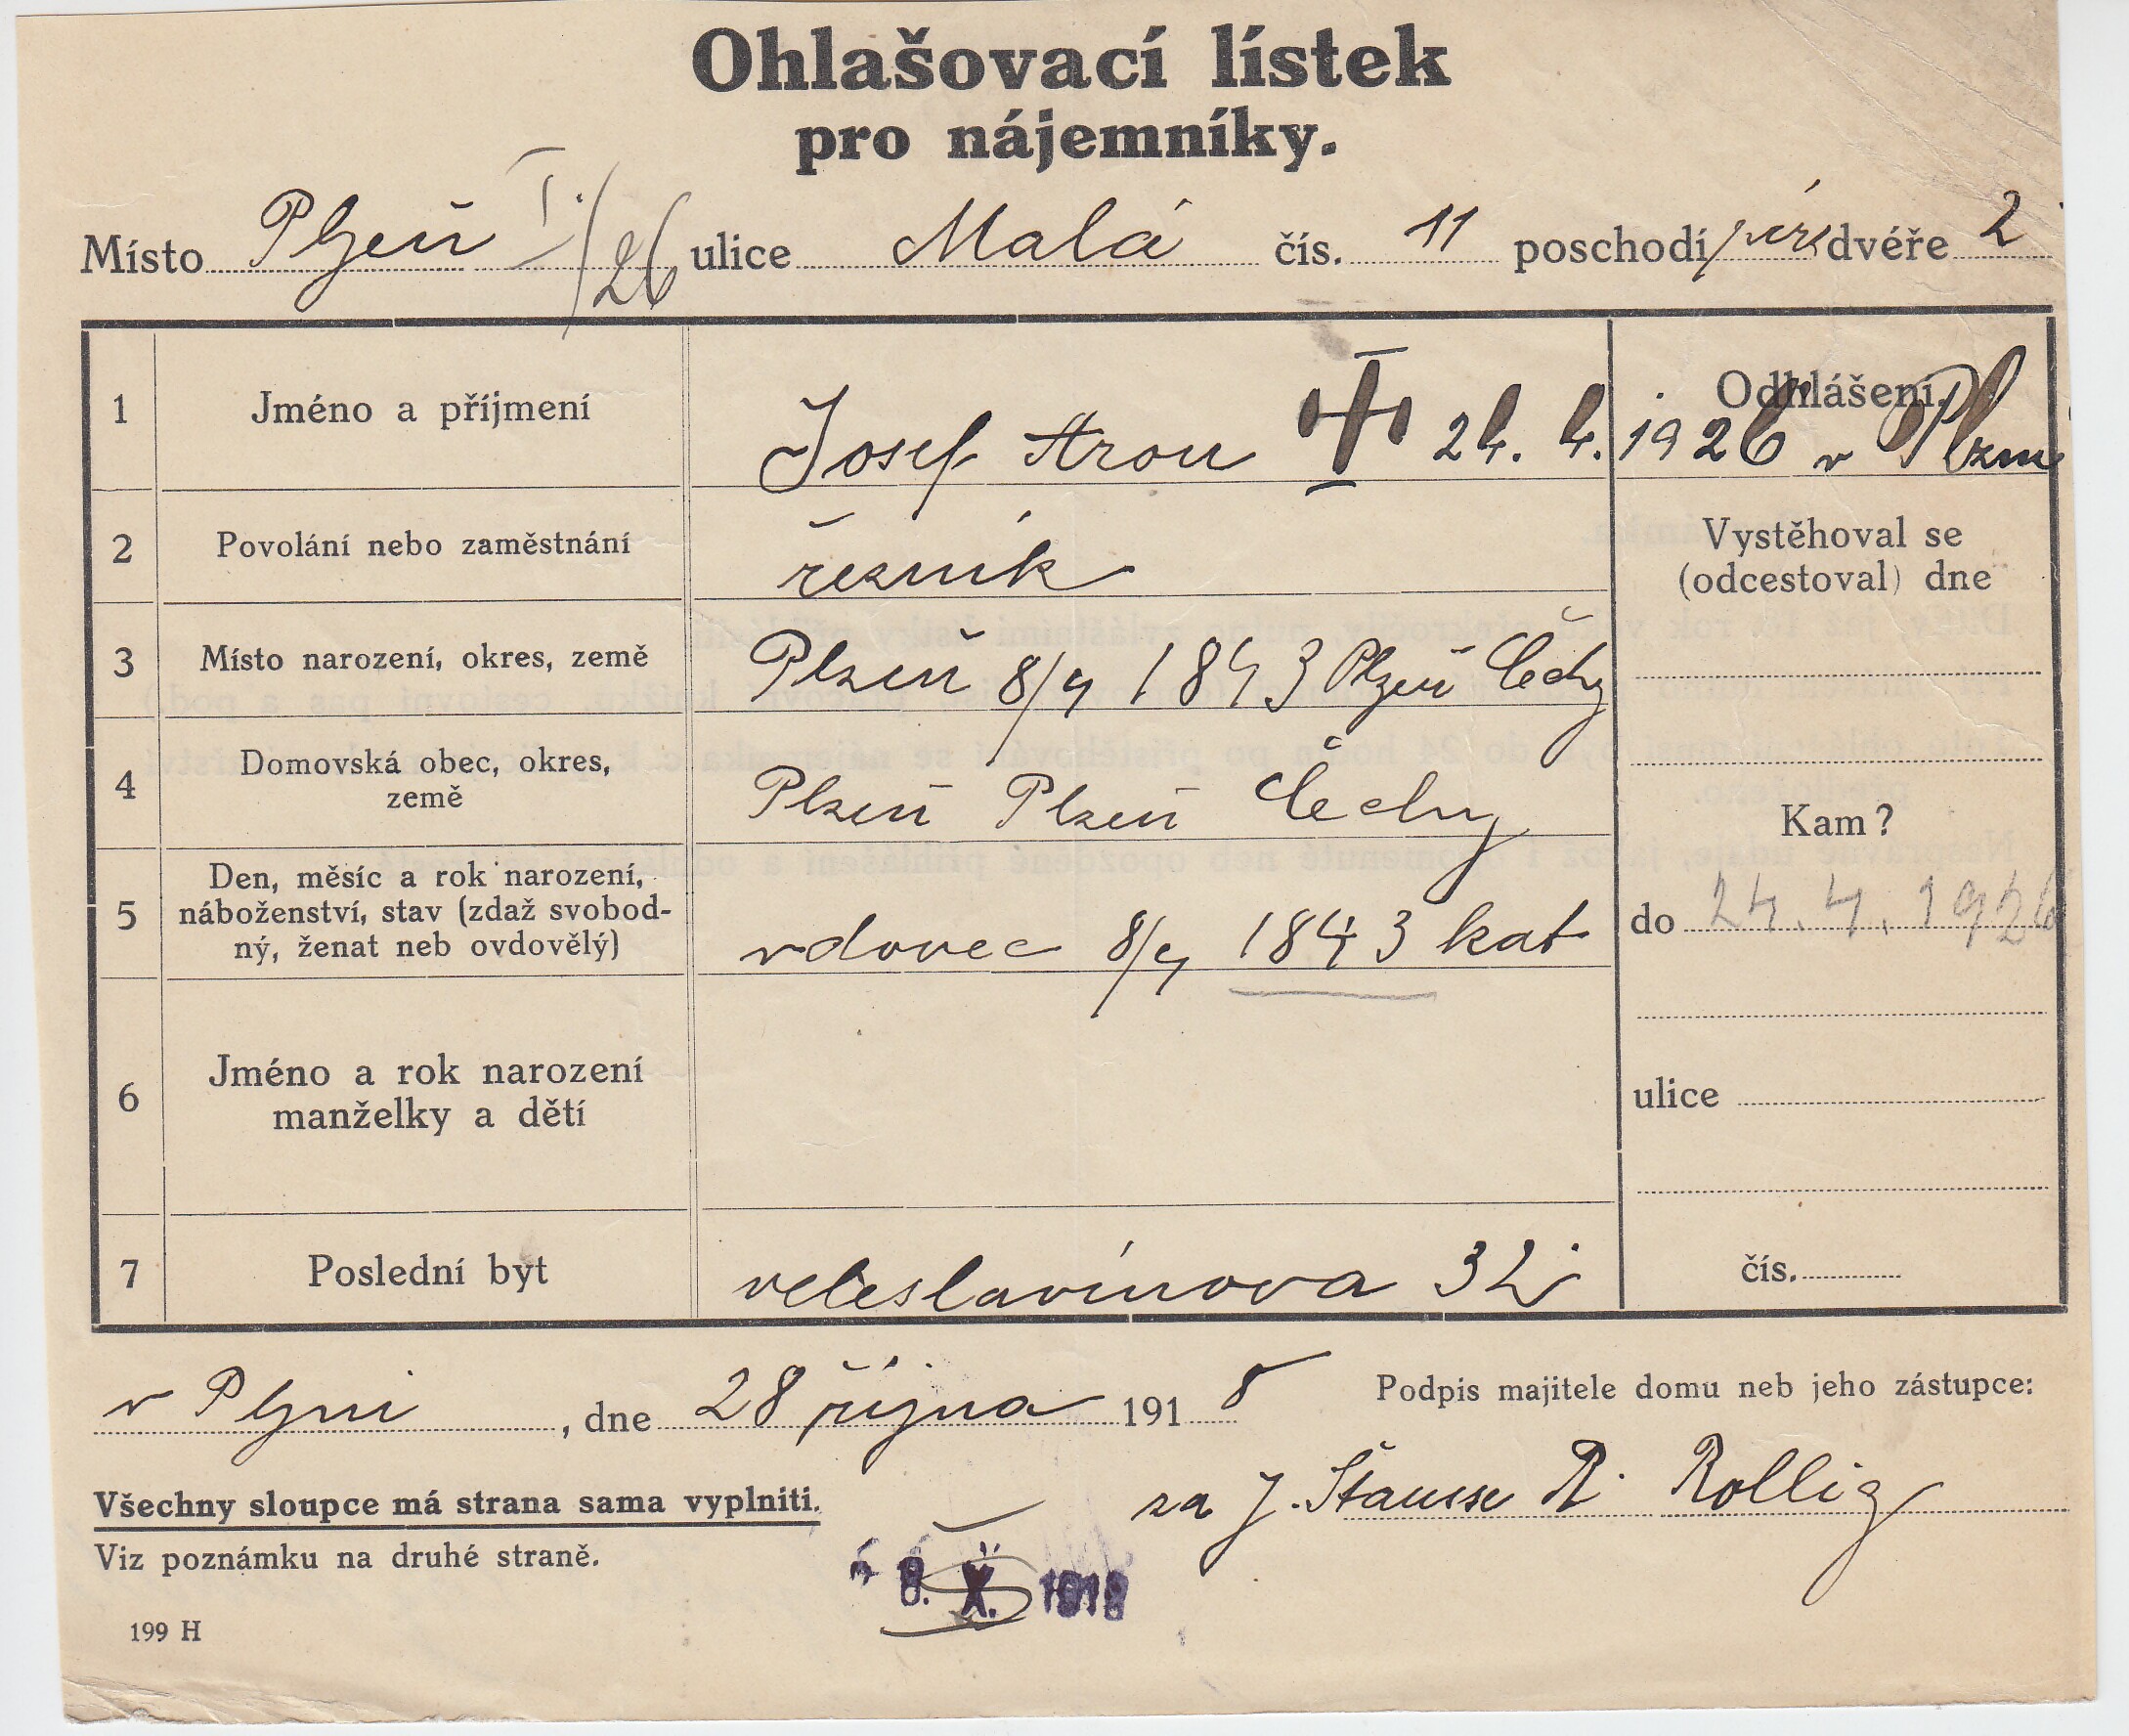 Ohlašovací lístek
pro nájemníky.
Místo Plzeň I./26 ulice Malá čís. 11 poschodí dvéře 2
1 Jméno a příjmení Josef Aron 24. 4. 1926 v Plzni
Odhlášení.
2 Povolání nebo zaměstnání řezník
Vystěhoval se
(odcestoval) dne
3 Místo narození, okres, země Plzeň 8/4 1843 Plzeň Čechy
4 Domovská obec, okres,
země
Plzeň Plzeň Čechy
Kam?
5 Den, měsíc a rok narození,
náboženství, stav (zdaž svobod-
ný, ženat neb ovdovělý)
vdovec 8/4 1843 kat
do 24. 4. 1926
6 Jméno a rok narození
manželky a dětí
ulice
7 Poslední byt veleslavínova 32
čís.
v Plzni, dne 28 října 1918
Podpis majitele domu neb jeho zástupce:
za J. R. Rollig
Všechny sloupce má strana sama vyplniti.
Viz poznámku na druhé straně.
8. X. 1918
199 H